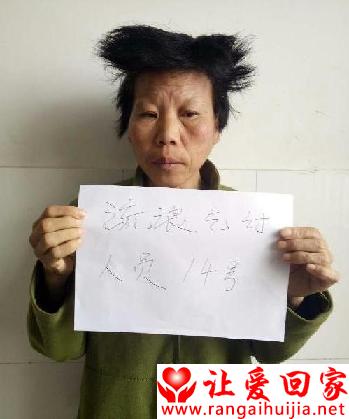 流浪乞讨
人员 14号
让爱回家
www.rangaihuijia.net